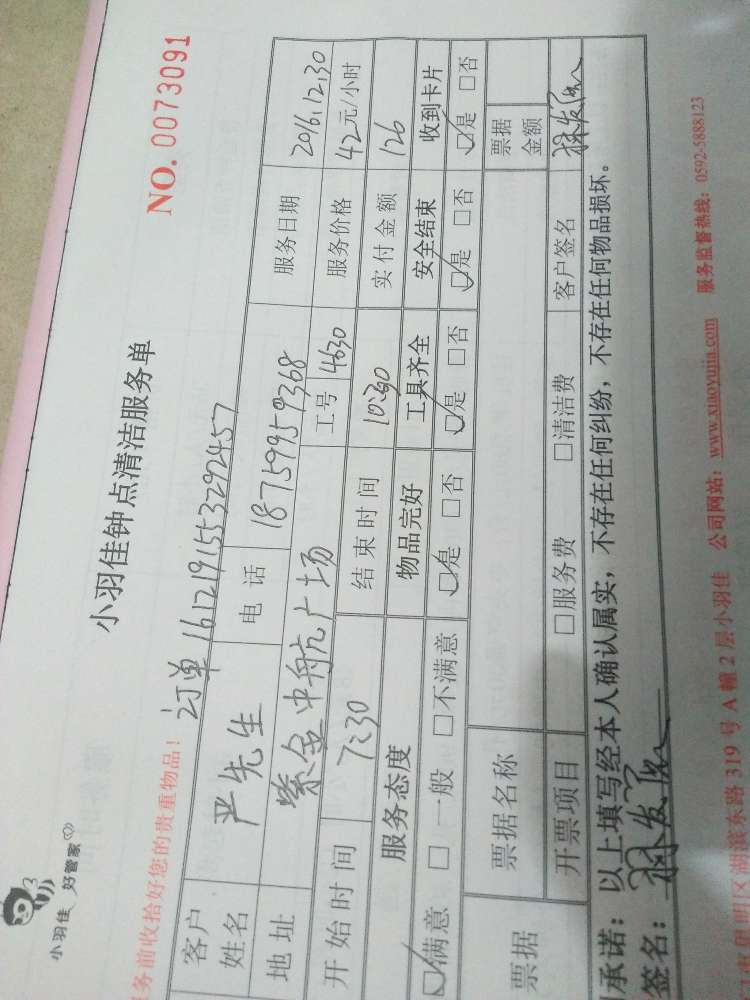 小羽佳 好管家
小羽佳钟点清洁服务单
NO. 0073091
务前收拾好您的贵重物品！ 订单 1612191553292457
客户姓名 严先生 电话 18759959368 服务日期 2016.12.30
地址 紫金中航广场 工号 4630 服务价格 42元/小时
开始时间 7:30 结束时间 10:30 实付金额 126
服务态度 物品完好 工具齐全 安全结束 收到卡片
☑满意 □一般 □不满意 ☑是 □否 ☑是 □否 ☑是 □否 ☑是 □否
票据 票据名称 票据金额
开票项目 □服务费 □清洁费 客户签名
承诺：以上填写经本人确认属实，不存在任何纠纷，不存在任何物品损坏。
签名：
公司网站：www.xiaoyujia.com 服务监督热线：0592-5888123
明区湖滨东路 319 号 A 幢 2 层小羽佳